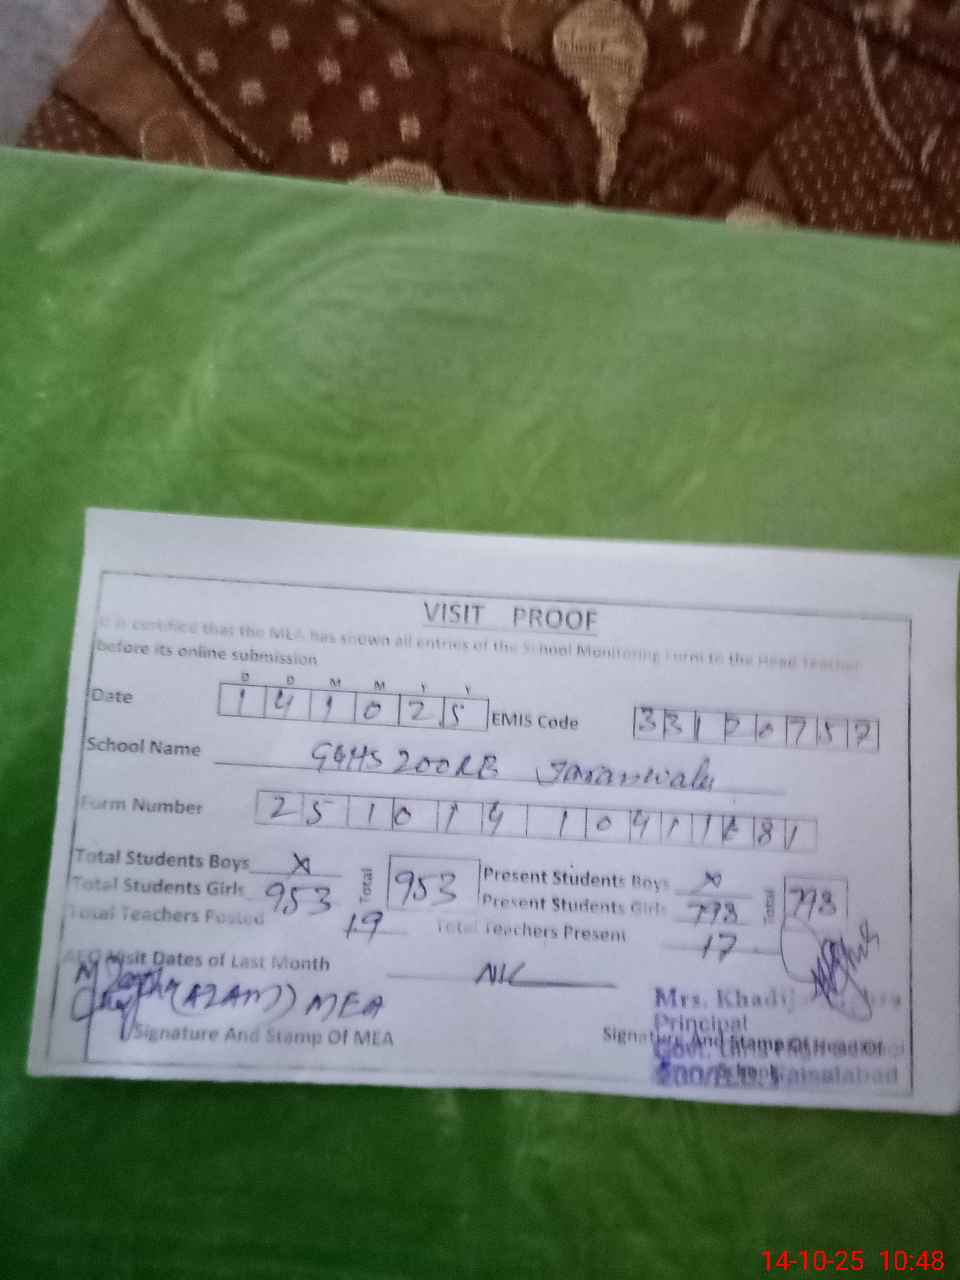 VISIT PROOF
It is certified that the MEA has shown all entries of the School Monitoring Form to the Head Teacher
before its online submission
D D M M Y Y
Date 1 4 1 0 2 5 EMIS Code 3 3 1 2 0 7 5 2
School Name GGHS 200RB Jaranwala
Form Number 2 5 1 0 1 4 1 0 4 1 1 8 1
Total Students Boys X Total 953 Present Students Boys X Total 798
Total Students Girls 953 Present Students Girls 798
Total Teachers Posted 19 Total Teachers Present 17
AEO Visit Dates of Last Month NIL
(AZAM) MEA
Mrs. Khadij
Principal
Signature And Stamp Of MEA Signature And Stamp Of Head Of
School
Govt. Girls
200/R.B. Faisalabad
14-10-25 10:48